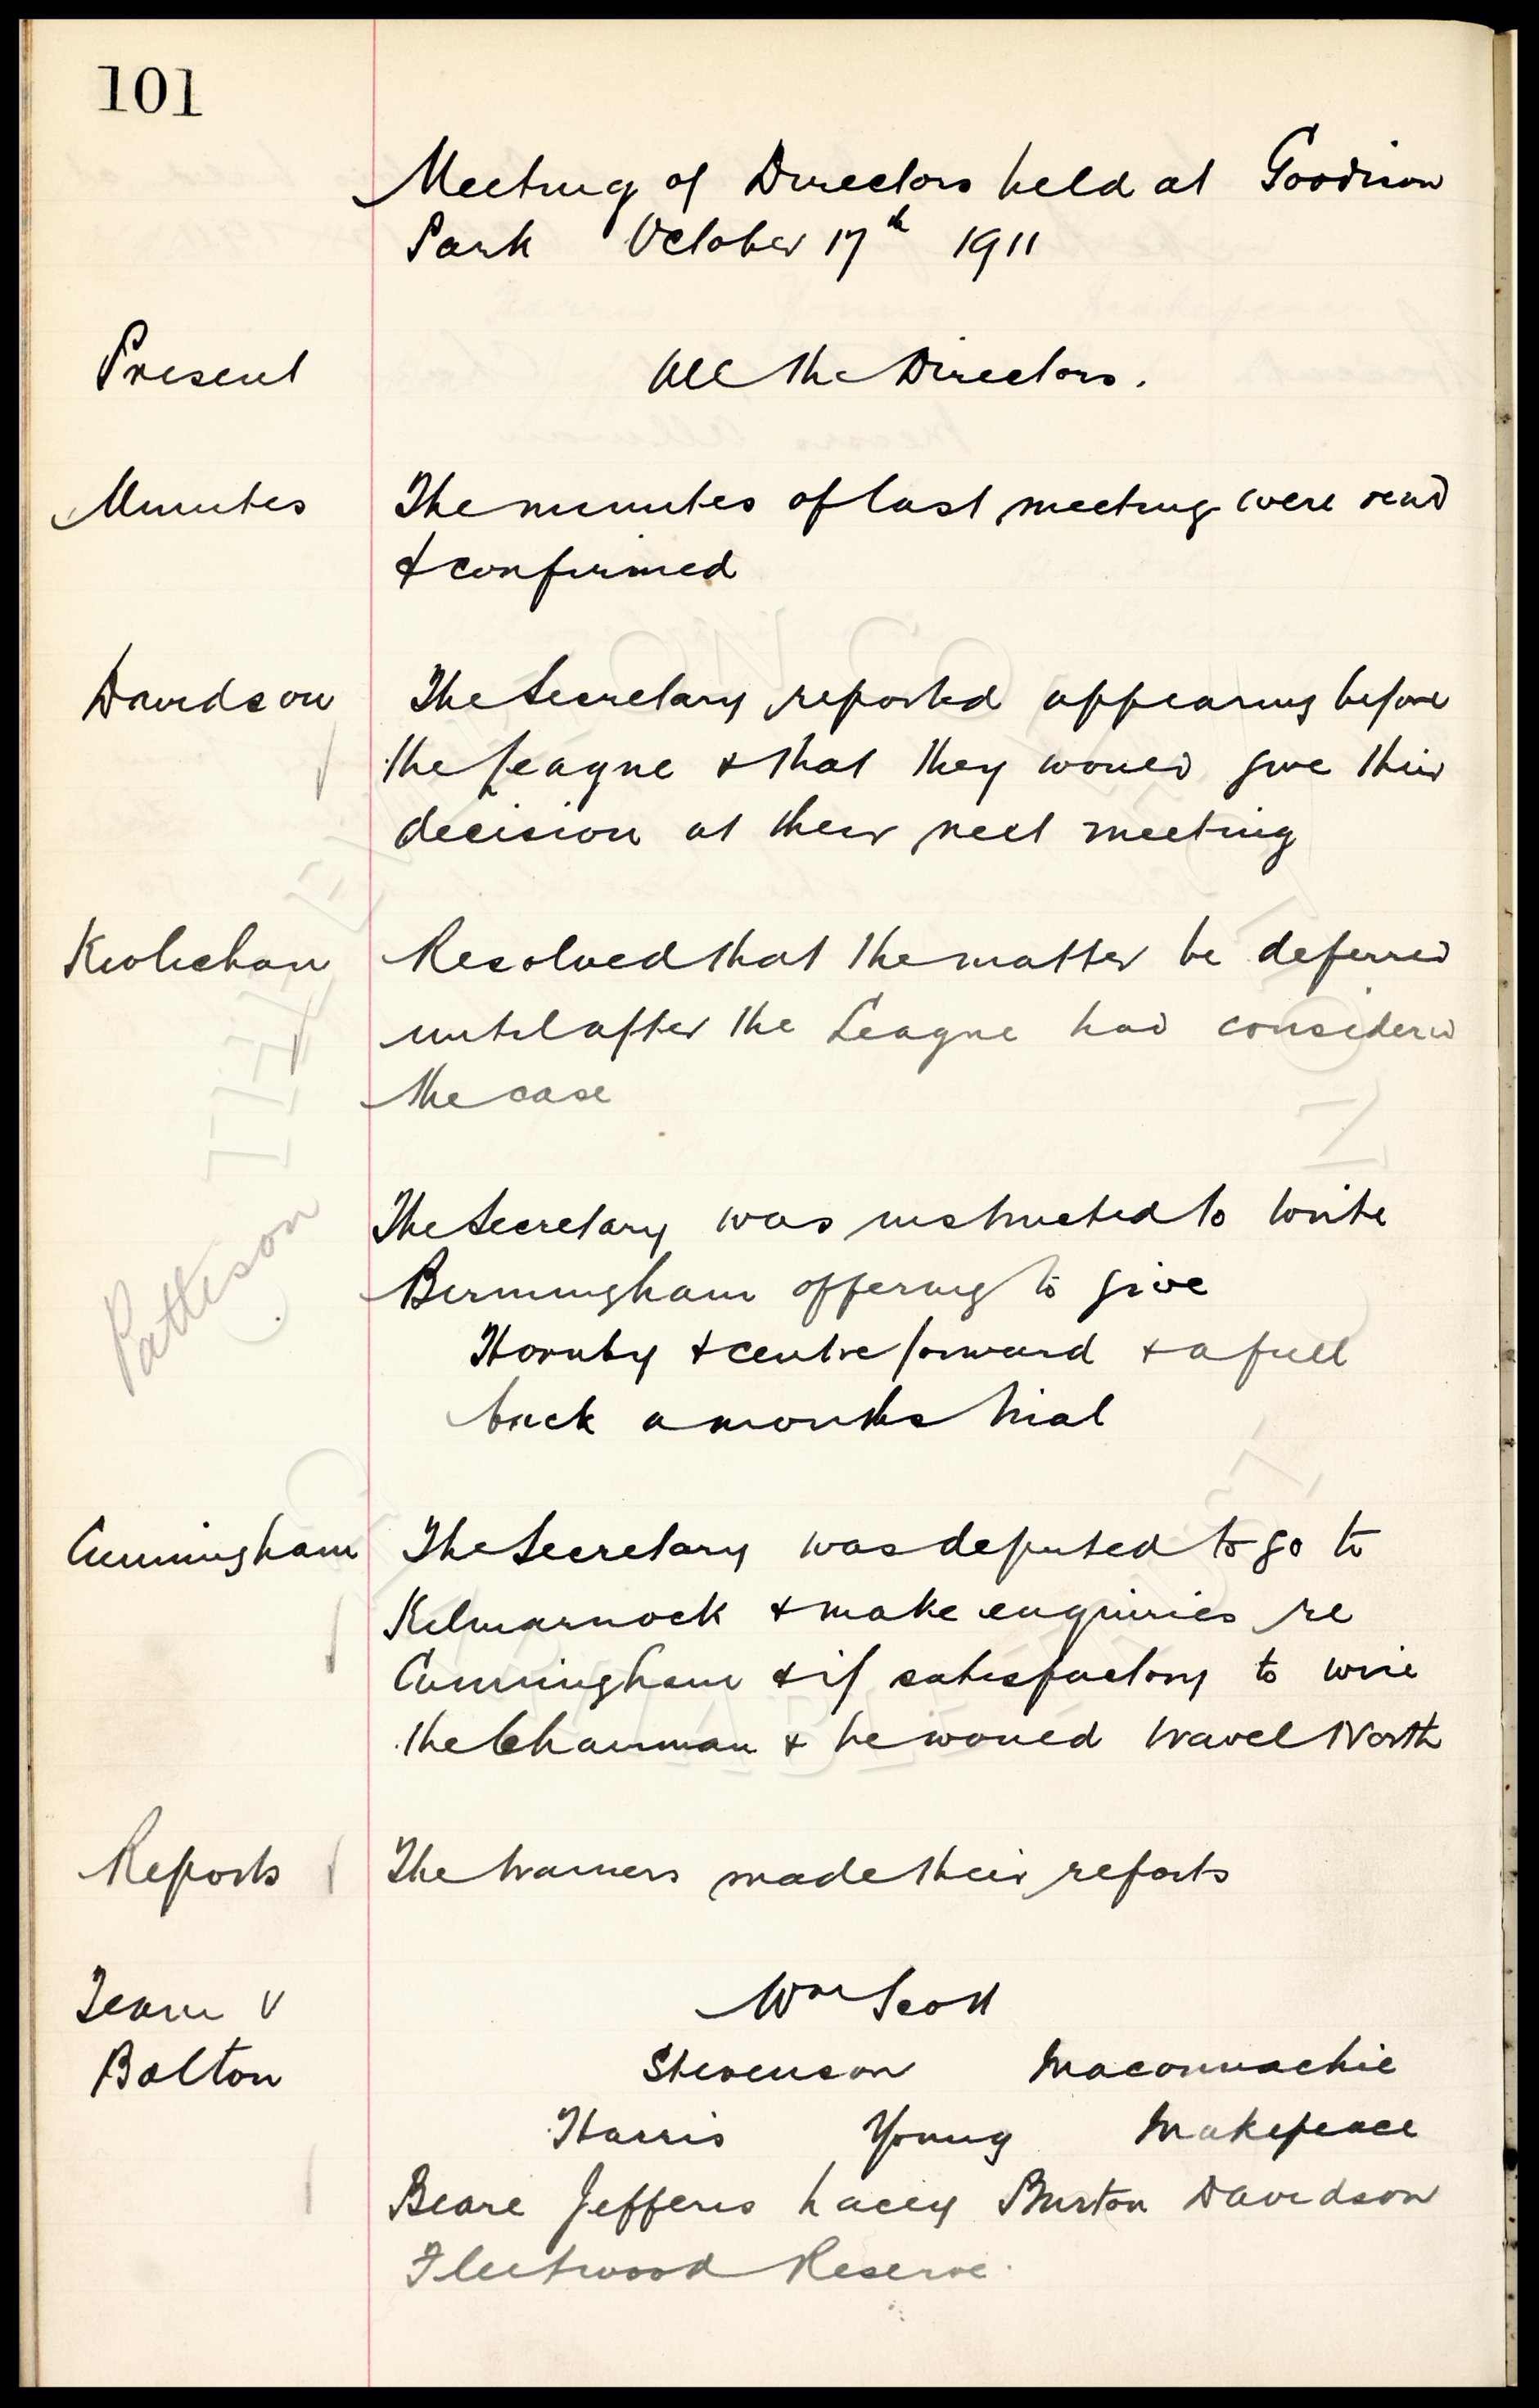 101
Meeting of Directors held at Goodison
Park October 17th 1911
Present All the Directors.
Minutes The minutes of last meeting were read
& confirmed
Davidson The Secretary reported appearing before
the League & that they would give their
decision at their next meeting
Kirlichan Resolved that the matter be deferred
until after the League had considered
the case
Pattison
The Secretary was instructed to write
Birmingham offering to give
Hornby & centre forward & a full
back a months trial
Cunningham The Secretary was deputed to go to
Kilmarnock & make enquiries re
Cunningham & if satisfactory to wire
the Chairman & he would travel North
Reports The trainers made their reports
Team v Wm Scott
Bolton Stevenson Maconnachie
Harris Young Makepeace
Beare Jefferis Lacey Burton Davidson
Fleetwood Reserve.